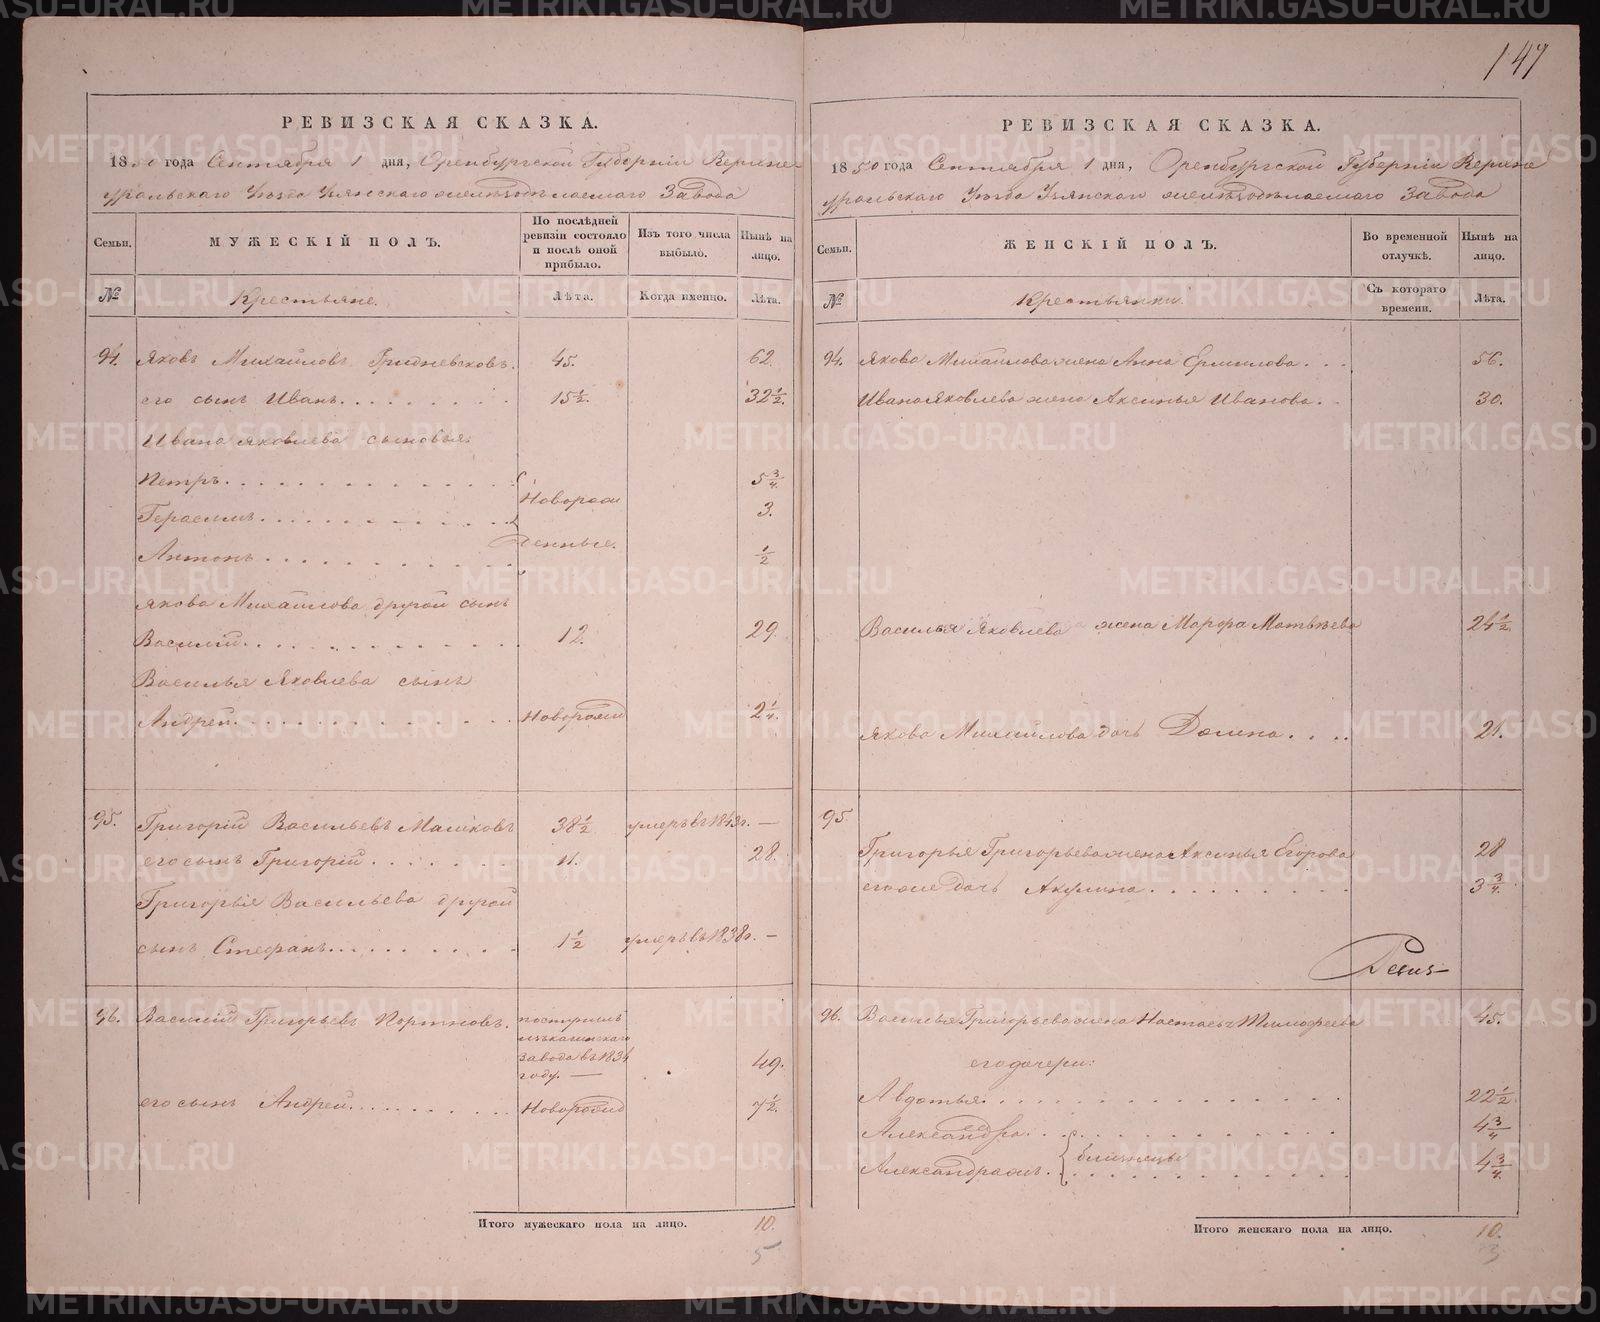 147
РЕВИЗСКАЯ СКАЗКА.
1850 года Сентября 1 дня, Оренбургской Губерніи Верхне
уральскаго Уѣзда Узянскаго желѣзодѣлаемаго Завода
Семьи.
МУЖЕСКІЙ ПОЛЪ.
По послѣдней ревизіи состояло и послѣ оной прибыло.
Изъ того числа выбыло.
Нынѣ на лицо.
№
Крестьяне
Лѣта.
Когда именно.
Лѣта.
94. Яковъ Михайловъ Гридневсковъ. 45. 62.
его сынъ Иванъ. 15½. 32½.
Ивана Яковлева сыновья:
Петръ. 5¾.
Новорож
Герасимъ. 3.
денные.
Антонъ ½
Якова Михайлова другой сынъ
Василій. 12. 29.
Василья Яковлева сынъ
Андрей. Новорожд 2¼.
95. Григорій Васильевъ Малковъ 38½ умеръ въ 1843г. —
его сынъ Григорій. 11. 28.
Григорья Васильева другой
сынъ Стефанъ. 1½ умеръ въ 1838г. —
96. Василій Григорьевъ Портновъ. поступилъ
изъ кагинскаго
завода въ 1834 49.
году. —
его сынъ Андрей. Новорожд 7½.
Итого мужескаго пола на лицо. 10.
5
РЕВИЗСКАЯ СКАЗКА.
1850 года Сентября 1 дня, Оренбургской Губерніи Верхне
уральскаго Уѣзда Узянскаго желѣзодѣлаемаго Завода
Семьи.
ЖЕНСКІЙ ПОЛЪ.
Во временной отлучкѣ.
Нынѣ на лицо.
№
Крестьянки
Съ котораго времени.
Лѣта.
94. Якова Михайлова жена Анна Ермилова. 56.
Ивана Яковлева жена Аксинья Иванова. 30.
Василья Яковлева жена Марфа Матвѣева 24½.
Якова Михайлова дочь Домна. 21.
95.
Григорья Григорьева жена Аксинья Егорова 28
его же дочь Акулина. 3¾.
96. Василья Григорьева жена Настасья Тимофеева 45.
его дочери:
Авдотья. 22½.
Александра. 4¾
близнецы
Александра ж. 4¾.
Итого женскаго пола на лицо. 10.
3
METRIKI.GASO-URAL.RU